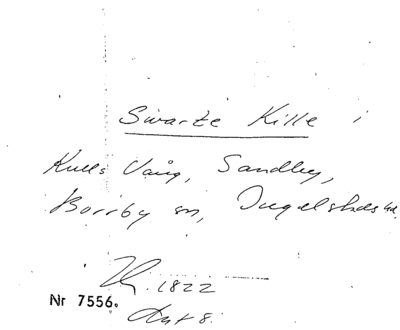 Swarte Kille i
Kulls Vång, Sandby,
Borrby sn, Ingelstads hd.
1822
Nr 7556.
Akt 8.